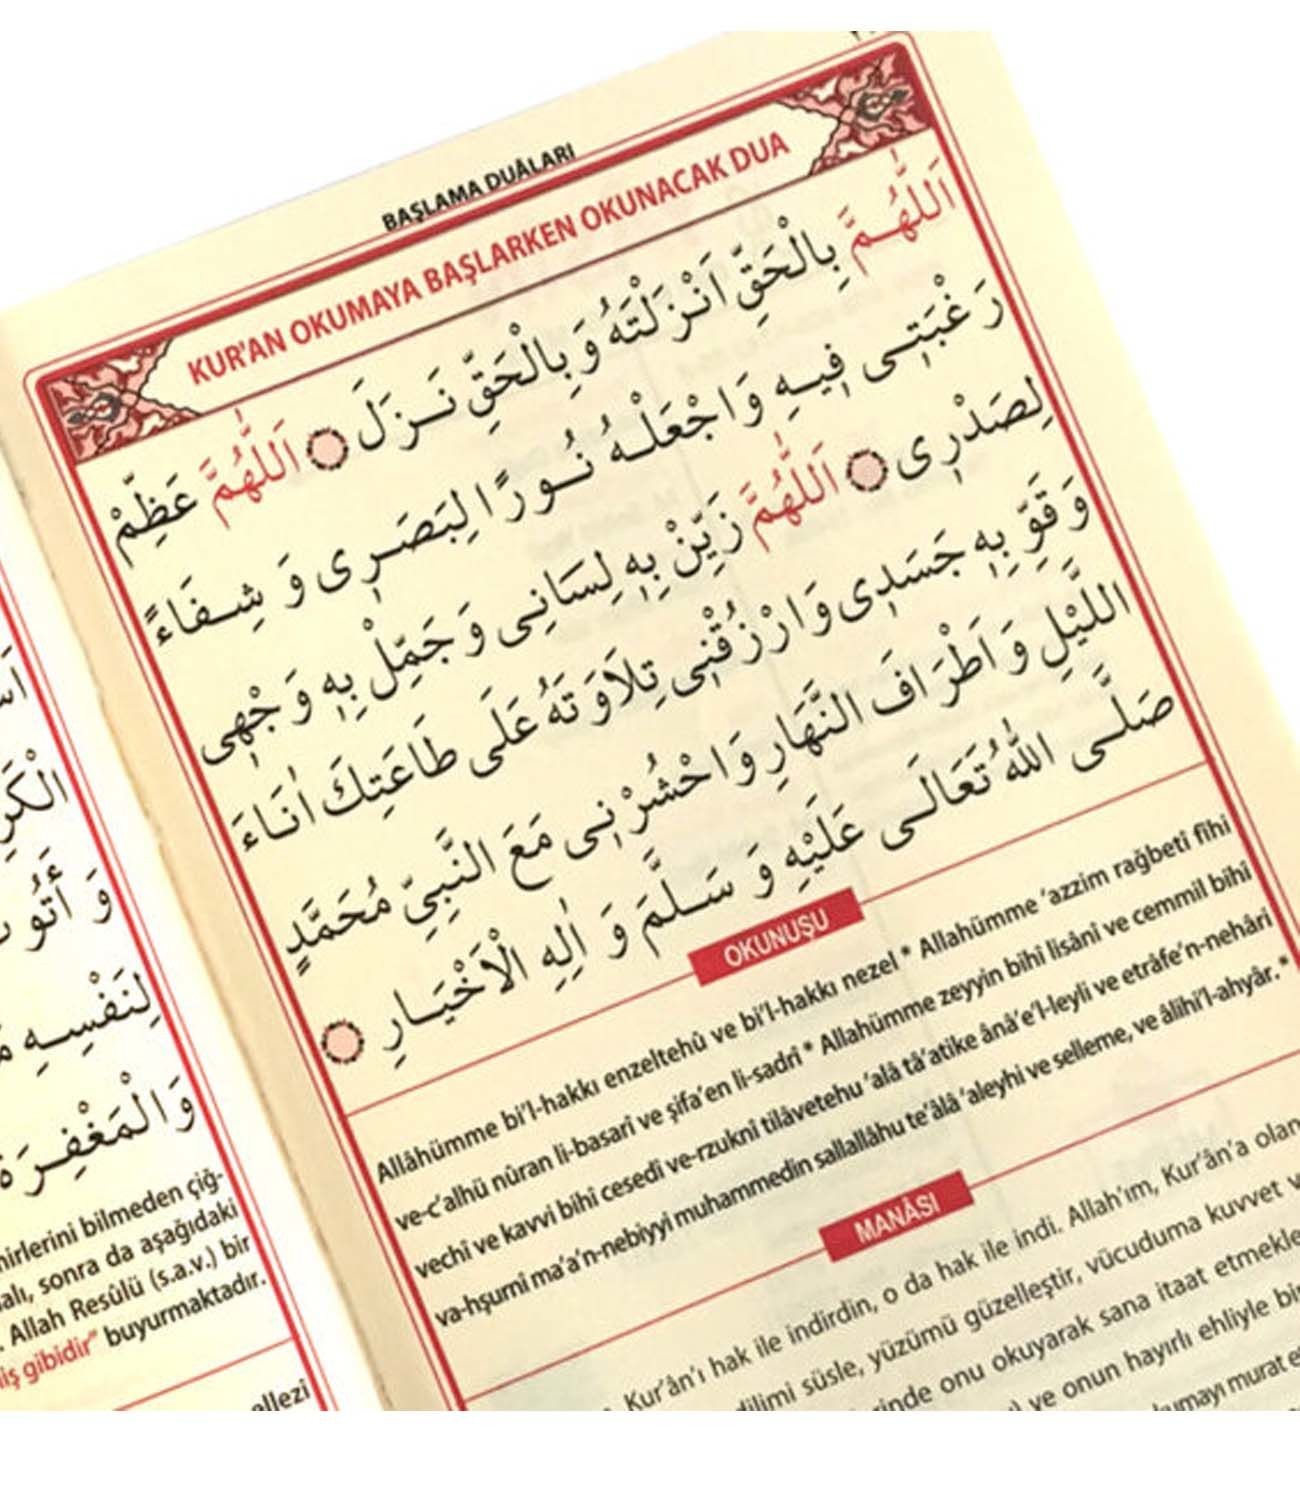 BAŞLAMA DUÂLARI
KUR'AN OKUMAYA BAŞLARKEN OKUNACAK DUA
اَللّٰهُمَّ بِالْحَقِّ اَنْزَلْتَهُ وَبِالْحَقِّ نَزَلَ اَللّٰهُمَّ عَظِّمْ
رَغْبَتِى فِيهِ وَاجْعَلْهُ نُورًا لِبَصَرِى وَ شِفَاءً
لِصَدْرِى اَللّٰهُمَّ زَيِّنْ بِهِ لِسَانِى وَجَمِّلْ بِهِ وَجْهِى
وَقَوِّ بِهِ جَسَدِى وَارْزُقْنِى تِلَاوَتَهُ عَلَى طَاعَتِكَ اٰنَاءَ
اللَّيْلِ وَاَطْرَافَ النَّهَارِ وَاحْشُرْنِى مَعَ النَّبِيِّ مُحَمَّدٍ
صَلَّى اللّٰهُ تَعَالَى عَلَيْهِ وَ سَلَّمَ وَ اٰلِهِ الْاَخْيَارِ
OKUNUŞU
Allâhümme bi'l-hakkı enzeltehû ve bi'l-hakkı nezel * Allahümme 'azzim rağbetî fîhi
ve-c'alhü nûran li-basarî ve şifa'en li-sadrî * Allahümme zeyyin bihî lisânî ve cemmil bihî
vechî ve kavvi bihî cesedî ve-rzuknî tilâvetehu 'alâ tâ'atike ânâ'e'l-leyli ve etrâfe'n-nehâri
va-hşurnî ma'a'n-nebiyyi muhammedin sallallâhu te'âlâ 'aleyhi ve selleme, ve âlihi'l-ahyâr. *
MANÂSI
Kur'ân'ı hak ile indirdin, o da hak ile indi. Allah'ım, Kur'ân'a olan
dilimi süsle, yüzümü güzelleştir, vücuduma kuvvet v
rinde onu okuyarak sana itaat etmekle
) ve onun hayırlı ehliyle bir
kumayı murat e
الْكَرِ
وَ أَتُو
لِنَفْسِهِ
وَالْمَغْفِرَةَ
hirlerini bilmeden çiğ-
alı, sonra da aşağıdaki
. Allah Resûlü (s.a.v.) bir
iş gibidir" buyurmaktadır.
ellezî